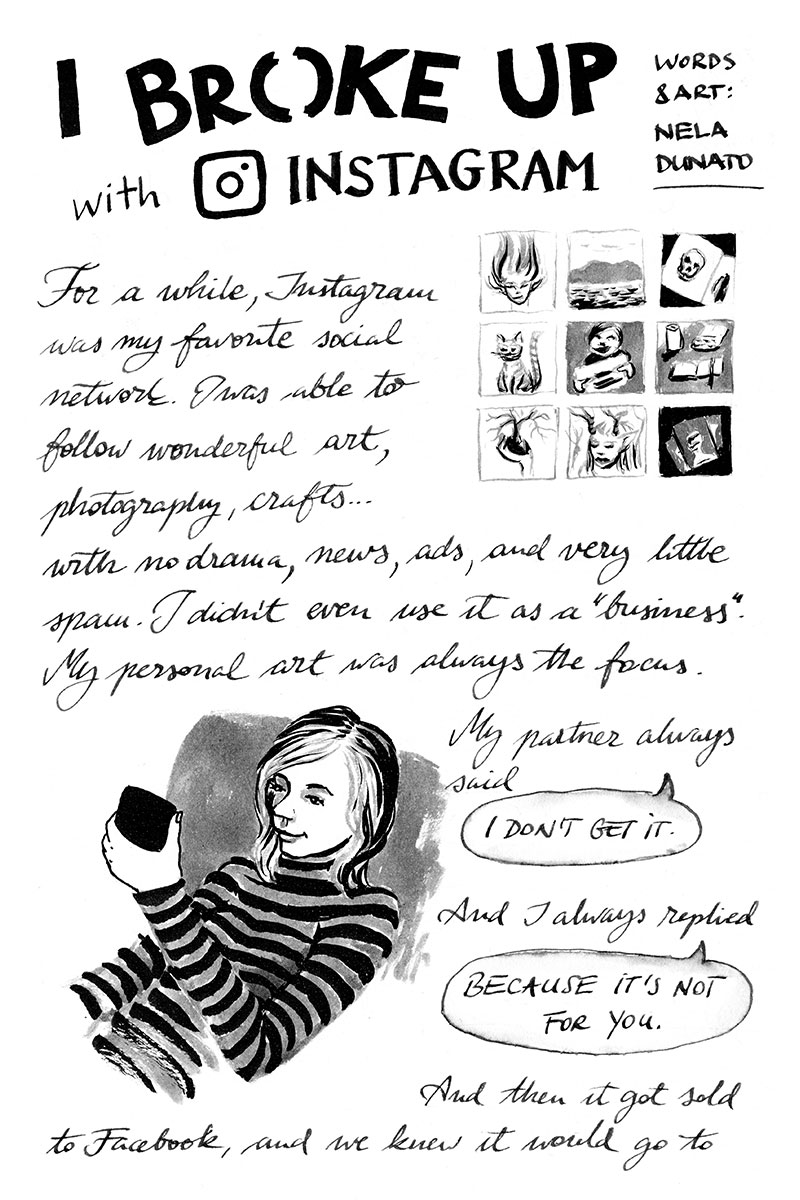 I BROKE UP
with INSTAGRAM
WORDS
& ART:
NELA
DUNATO
For a while, Instagram
was my favorite social
network. I was able to
follow wonderful art,
photography, crafts...
with no drama, news, ads, and very little
spam. I didn't even use it as a "business".
My personal art was always the focus.
My partner always
said
I DON'T GET IT.
And I always replied
BECAUSE IT'S NOT
FOR YOU.
And then it got sold
to Facebook, and we knew it would go to